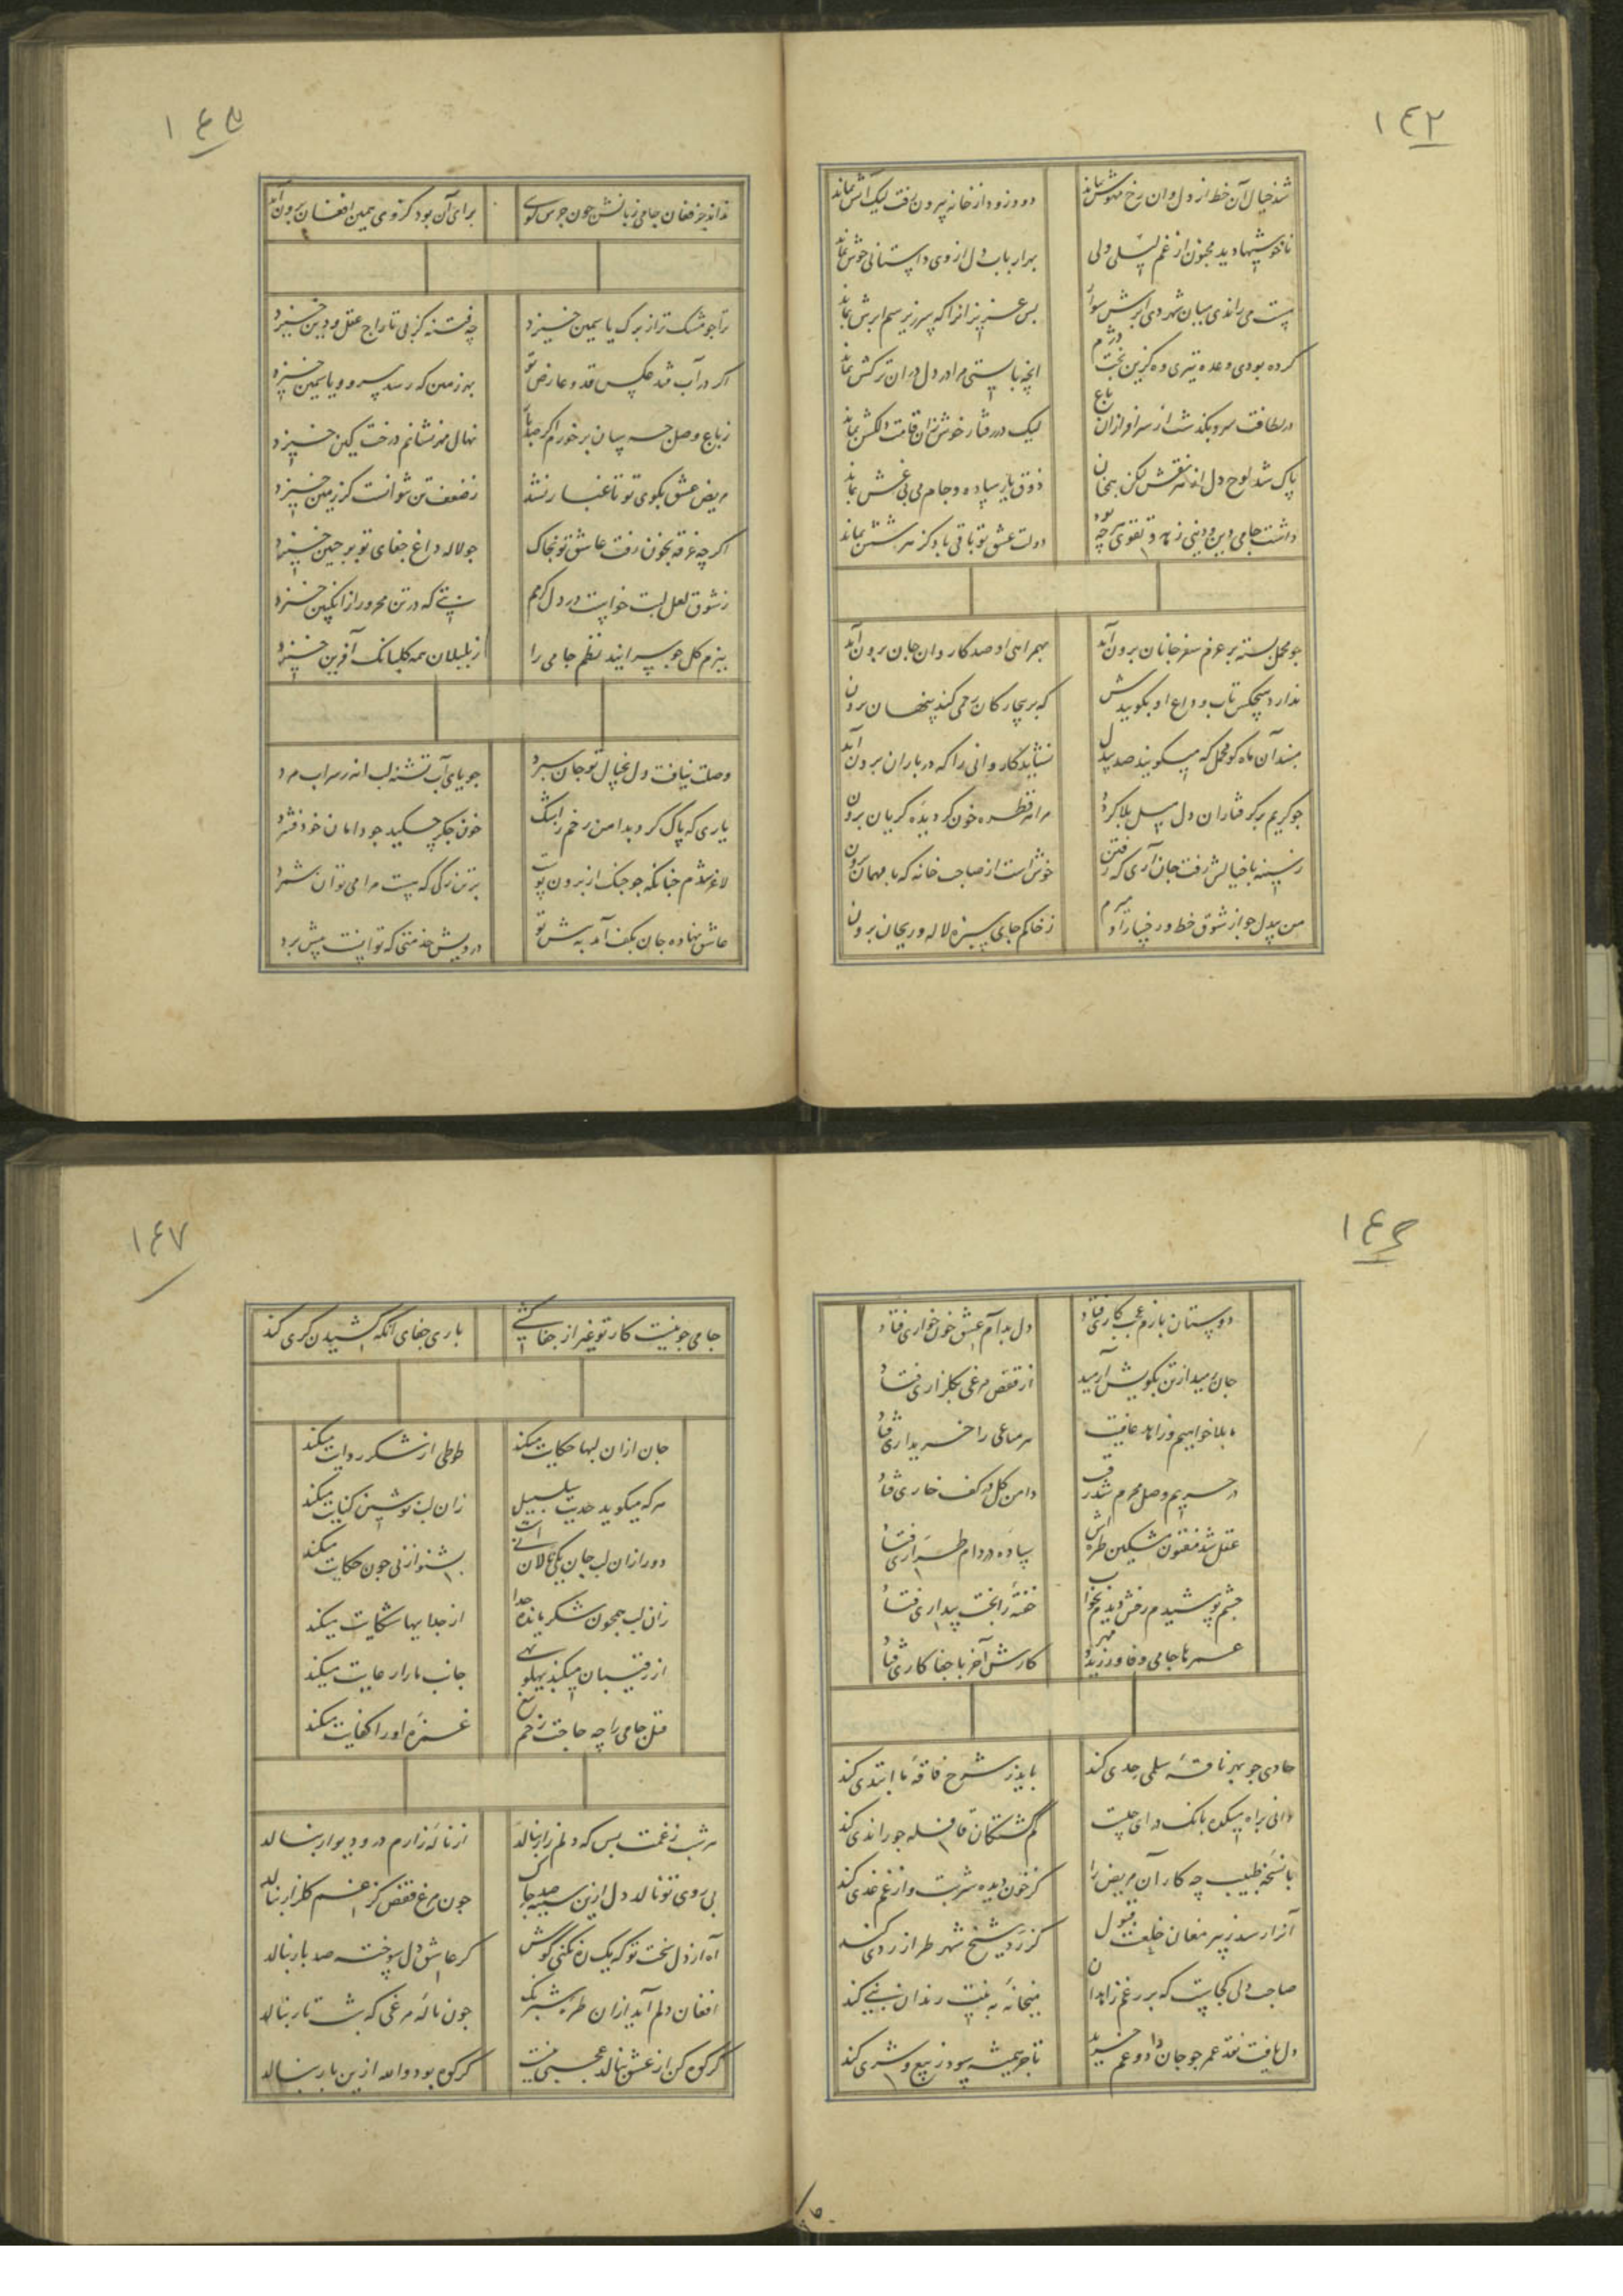 ۱۴۴
شد خیال آن خط از دل وان رخ مهوش بماند دود زود از خانه بیرون رفت لیک آتش بماند
ناخوشیها دید مجنون از غم لیلی ولی بهر ارباب دل از وی داستانی خوش بماند
مست می راندی میان شهر دی ابرش سوار بس عزیزانرا که سر زیر سم ابرش بماند
کرده بودی وعده تیری وه کزین بخت دژم آنچه بایستی مرا در دل در ان ترکش بماند
در لطافت سرو بگذشت از سرافرازان باغ لیک در رفتار خوش زان قامت دلکش بماند
پاک شد لوح دل از هر نقش لیکن همچنان ذوق یار ساده و جام می بی غش بماند
داشت جامی دین و دنیی زهد و تقوی هرچه بود دولت عشق تو باقی باد کز هر شش بماند
چو محمل بسته بر عزم سفر جانان برون آمد بهمراهی او صد کاروان جان برون آمد
ندارد هیچکس تاب وداع او بگوییدش که بر بیچارگان رحمی کند پنهان برون
مبند آن ماه گو محمل که میگویند صد بیدل نشاید کاروانی را که در باران برون آمد
چو گریم بر گرفتاران دل سیل بلا گردد مرا هر قطره خون کز دیده گریان برون
ز سینه با خیالش رفت جان آری گه رفتن خوش است از صاحب خانه که با مهمان برون
من بیدل چو از شوق خط و رخسار او میرم ز خاکم جای سبزه لاله و ریحان برون
۱۴۵
نداند جز فغان جامی زبانش چون جرس گویی برای آن بود کز وی همین افغان برون آمد
ترا چو مشک تر از برگ یاسمین خیزد چه فتنه کز پی تاراج عقل و دین خیزد
اگر در آب فتد عکس قد و عارض تو بهر زمین که رسد سرو و یاسمین خیزد
ز باغ وصل چه سان بر خورم اگر صد بار نهال مهر نشانم درخت کین خیزد
مریض عشق بکوی تو تا غبار نشد ز ضعف تن نتوانست کز زمین خیزد
اگر چه غرقه بخون رفت عاشق تو بخاک چو لاله داغ جفای تو بر جبین خیزد
ز شوق لعل لبت خواست در دل گرمم تبی که در تن محرور از انگبین خیزد
ببزم گل چو سرایند نظم جامی را ز بلبلان همه گلبانگ آفرین خیزد
وصلت نیافت دل بخیال تو جان سپرد جویای آب تشنه لب اندر سراب مرد
یاری که پاک کرد بدامن ز رخم سرشک خون جگر چکید چو دامان خود فشرد
لاغر شدم چنانکه چو چنگ از برون پوست بر تن رگی که هست مرا می توان شمرد
عاشق نهاده جان بکف آمد به پیش تو درویش خدمتی که توانست پیش برد
۱۴۶
دوستان بازم عجب کاری فتاد دل بدام عشق خونخواری فتاد
جان رمید از تن بکویش آرمید از قفص مرغی بگلزاری فتاد
ما بلا خواهیم و زاهد عافیت هر متاعی را خریداری فتاد
در حریم وصل محرم شد رقیب دامن گل در کف خاری فتاد
عقل شد مفتون مشکین طره اش ساده در دام طراری فتاد
چشم پوشیدم رخش دیدم بخواب خفته را بخت بیداری فتاد
عمرها جامی وفا ورزید و مهر کارش آخر با جفا کاری فتاد
حادی چو بهر ناقه سلمی حدی کند باید ز شرح فاقه ما ابتدی کند
دانی براه میکده بانگ درای چیست گم گشتگان قافله چو راندی کند
با نسخه طبیب چه کار آن مریض را کز خون دیده شربت و از غم غذی کند
آنرا رسد ز پیر مغان خلعت قبول کز ردی شیخ شهر طراز ردی کند
صاحب دلی کجاست که بر رغم زاهدان میخانه به نیت رندان بنی کند
دل یافت نقد عمر چو جان داد و غم خرید تاجر همیشه سود ز بیع و شری کند
۱۴۷
جامی چو نیست کار تو غیر از جفاکشی باری جفای آنکه کشیدن کری کند
جان ازان لبها حکایت میکند طوطی از شکر روایت میکند
هر که میگوید حدیث سلسبیل زان لب نوشین کنایت میکند
دور ازان لب جان یکی نالان نی است بشنو از نی چون حکایت میکند
زان لب همچون شکر مانده جدا از جداییها شکایت میکند
از رقیبان میکند پهلو تهی جانب ما را رعایت میکند
قتل جامی را چه حاجت زخم تیغ غمزه او را کفایت میکند
هر شب ز غمت بس که دلم زار بنالد از ناله زارم در و دیوار بنالد
بی روی تو نالد دل ازین سینه صد چاک چون مرغ قفص کز غم گلزار بنالد
آه از دل سخت تو که یک ره نکنی گوش گر عاشق دل سوخته صد بار بنالد
افغان دلم آید ازان طره شبرنگ چون ناله مرغی که شب تار بنالد
گر کوه کن از عشق بنالد عجبی نیست گر کوه بود والله ازین بار بنالد